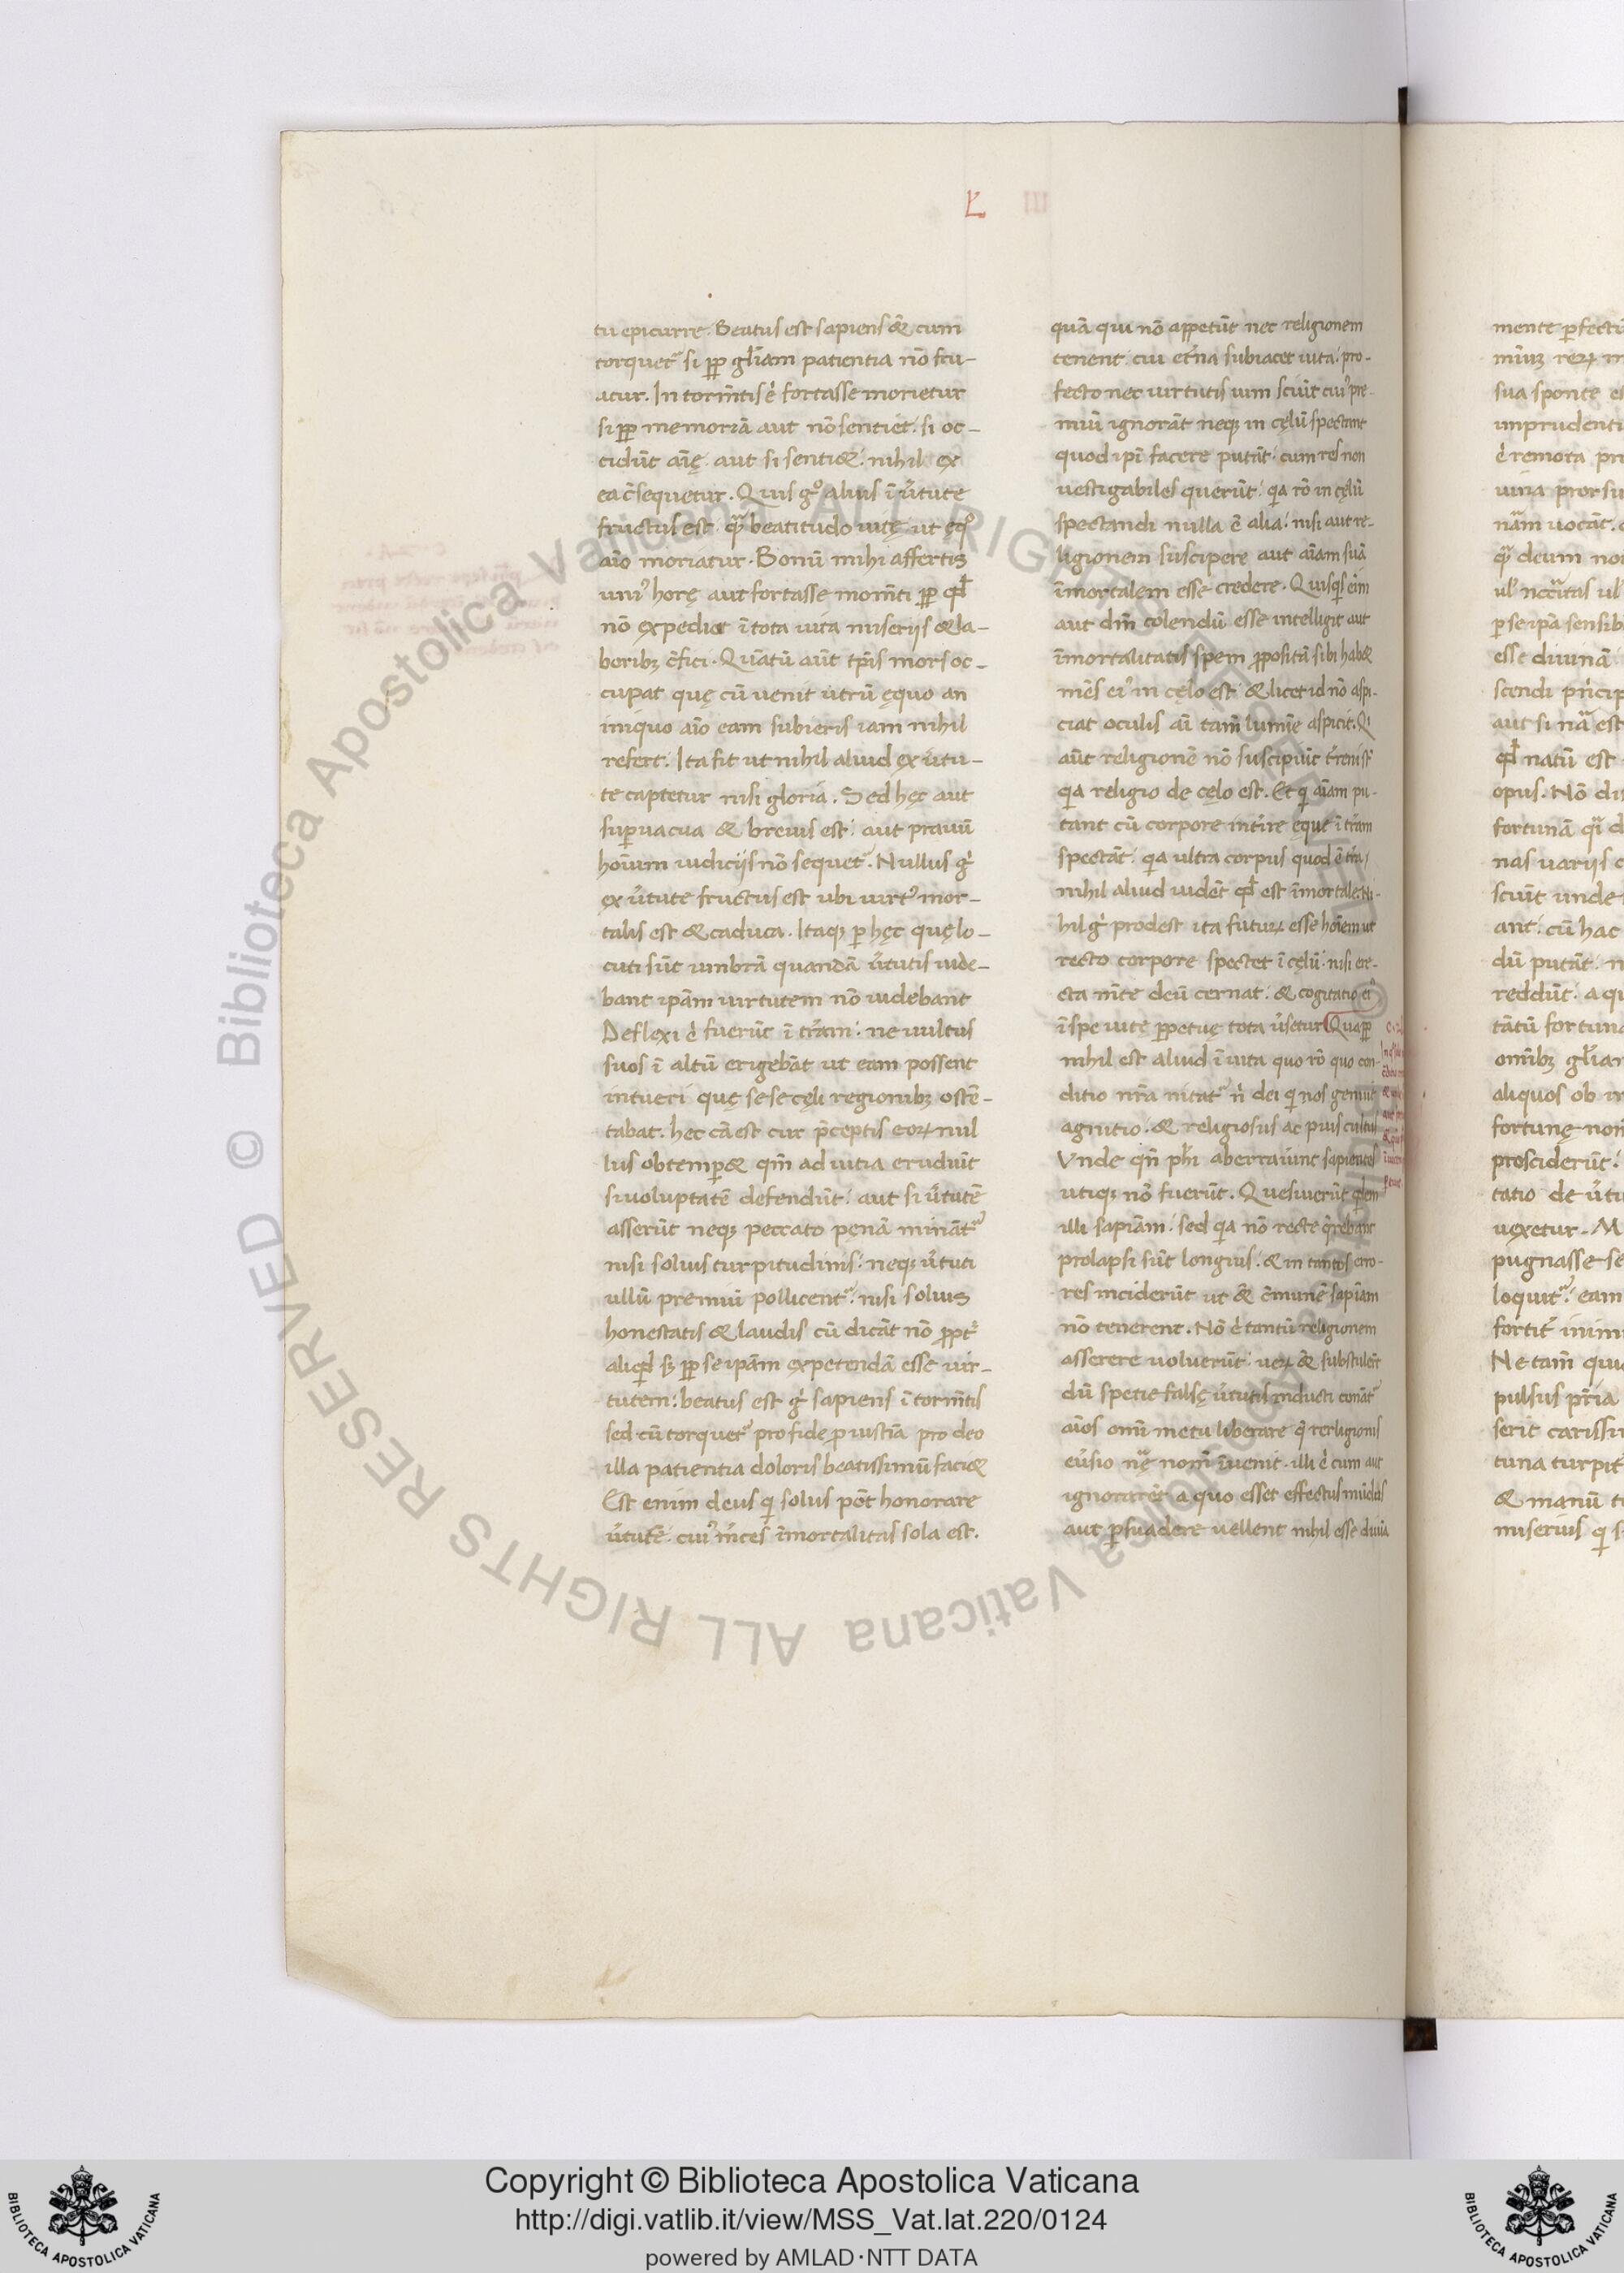 L
tu epicurre. Beatus est sapiens & cum
torquet᷑ si ꝓp gl̃iam patientia nõ fru-
atur. In torm̃tis ẽ fortasse morietur
si ꝓp memoriã aut nõ sentiet. si oc-
cidũt aĩę. aut si senti&. nihil ex
ea c̃sequetur. Quis gͦ alius ĩ ũtute
fructus est. q̃ beatitudo uitę. ut ęqͦ
aĩo moriatur. Bonũ mihi affertis
uniꝰ horę aut fortasse mom̃ti ꝓp qđ
nõ expediat ĩ tota uita miserijs & la-
boribꝫ c̃fici. Quãtũ aũt tp̃is mors oc-
cupat quę cũ uenit utrũ ęquo an
iniquo aĩo eam subieris iam nihil
refert. Ita fit ut nihil aliud ex ũtu-
te captetur nisi gloria. Sed hęc aut
suꝑuacua & breuis est. aut prauũ
hoĩum iudicijs nõ sequet᷑. Nullus g̊
ex ũtute fructus est ubi uirtꝰ mor-
talis est & caduca. Itaqꝫ ꝑ hęc quę lo-
cuti sũt umbrã quandã ũtutis uide-
bant ipãm uirtutem nõ uidebant
Deflexi ẽ fuerũt ĩ tr̃am. ne uultus
suos ĩ altũ erigebãt ut eam possent
intueri quę sese cęli regionibꝫ ostẽ-
tabat. hec cã est cur p̃ceptis eoꝝ nul
lus obtemꝑ& qm̃ ad uitia erudiũt
si uoluptatẽ defendũt. aut si ũtutẽ
asserũt neqꝫ peccato pęnã minãt᷑
nisi solius turpitudinis. neqꝫ ũtuti
ullũ premiũ pollicent᷑. nisi solius
honestatis & laudis cũ dicãt nõ ꝓpt̃
aliqđ sꝫ ꝓp se ipãm expetendã esse uir-
tutem. beatus est g̊ sapiens ĩ torm̃tis
sed cũ torquet᷑ pro fide p̱ iustĩa pro deo
illa patientia doloris beatissimũ faci&
Est enim deus q̃ solus põt honorare
ũtutẽ. cuiꝰ m̃ces ĩmortalitas sola est.
III
quã qui nõ appetũt nec religionem
tenent. cui et̃na subiacet uita. pro-
fecto nec uirtutis uim sciũt cuiꝰ pre-
miũ ignorãt neqꝫ in cęlũ spectant
quod ipĩ facere putãt. cum res non
uestigabiles querũt. qa rõ in cęlũ
spectandi nulla ẽ alia. nisi aut re-
ligionem suscipere aut aĩam suã
ĩmortalem esse credere. Quisqs eĩm
aut dm̃ colendũ esse intelligit aut
ĩmortalitatis spem ꝓpositã sibi hab&
mẽs eiꝰ in cęlo est. & licet id nõ aspi-
ciat oculis aĩ tam̃ lumĩe aspicit. Qi
aũt religionẽ nõ suscipiũt t̃reni st̃
qa religio de cęlo est. Et q̃ aĩam pu-
tant cũ corpore int̃ire ęque ĩ tr̃am
spectãt. qa ultra corpus quod ẽ tr̃a,
nihil aliud uidẽt qđ est ĩmortale. Ni-
hil g̊ prodest ita futuꝝ esse hoĩem ut
recto corpore spectet ĩ cęlũ. nisi ere-
cta m̃te deũ cernat. & cogitatio eiꝰ
ĩ spe uite ꝑpetuę tota ũsetur. Quaꝓp
nihil est aliud ĩ uita quo rõ quo con-
ditio nr̃a nitat᷑ n̊ dei q̃ nos genuit
agnitio. & religiosus ac pius cultus
Vnde qñ ph̃i aberrauunt sapientes
utiqꝫ nõ fuerũt. Quesiuerũt qdem
illi sapiãm. sed qa nõ recte q̃rebant
prolapsi sũt longius. & in tantos erro-
res inciderũt ut & c̃munẽ sapiãm
nõ tenerent. Nõ ẽ tantũ religionem
asserere uoluerũt. ueꝝ & substulẽt
dũ spetie falsę ũtutis inducti conãt᷑
aĩos omĩ metu liberare q̃ rerligionis
eũsio nę nom̃ ĩuenit. illi ẽ cum aut
ignorarẽt a quo esset effectus mũdus
aut ꝑsuadere uellent nihil esse diuĩa
mente ꝑfecti
sua sponte
imprudenti
ẽ remota
deum no
esse diuinã
aut si nã est
qđ natũ est
opus. Nõ di
fortunã
nas uarijs
sciũt unde
ant. cũ hac
dũ putãt.
reddũt. a q
tãtũ fortun
omĩbꝫ gl̃iar
aliquos ob
fortunę non
prosciderũt.
tatio de ũtu
uexetur. M
pugnasse se
loquit᷑. eam
fortit̃ inim
Ne tam̃ qui
pulsus pr̃ia
serit carissi
tuna turpit
& manũ t
miserius q̃ s
Copyright © Biblioteca Apostolica Vaticana
http://digi.vatlib.it/view/MSS_Vat.lat.220/0124
powered by AMLAD·NTT DATA
BIBLIOTECA APOSTOLICA VATICANA
BIBLIOTECA APOSTOLICA VATICANA
© Biblioteca Apostolica Vaticana ALL RIGHTS RESERVED © Biblioteca Apostolica Vaticana ALL RIGHTS RESERVED